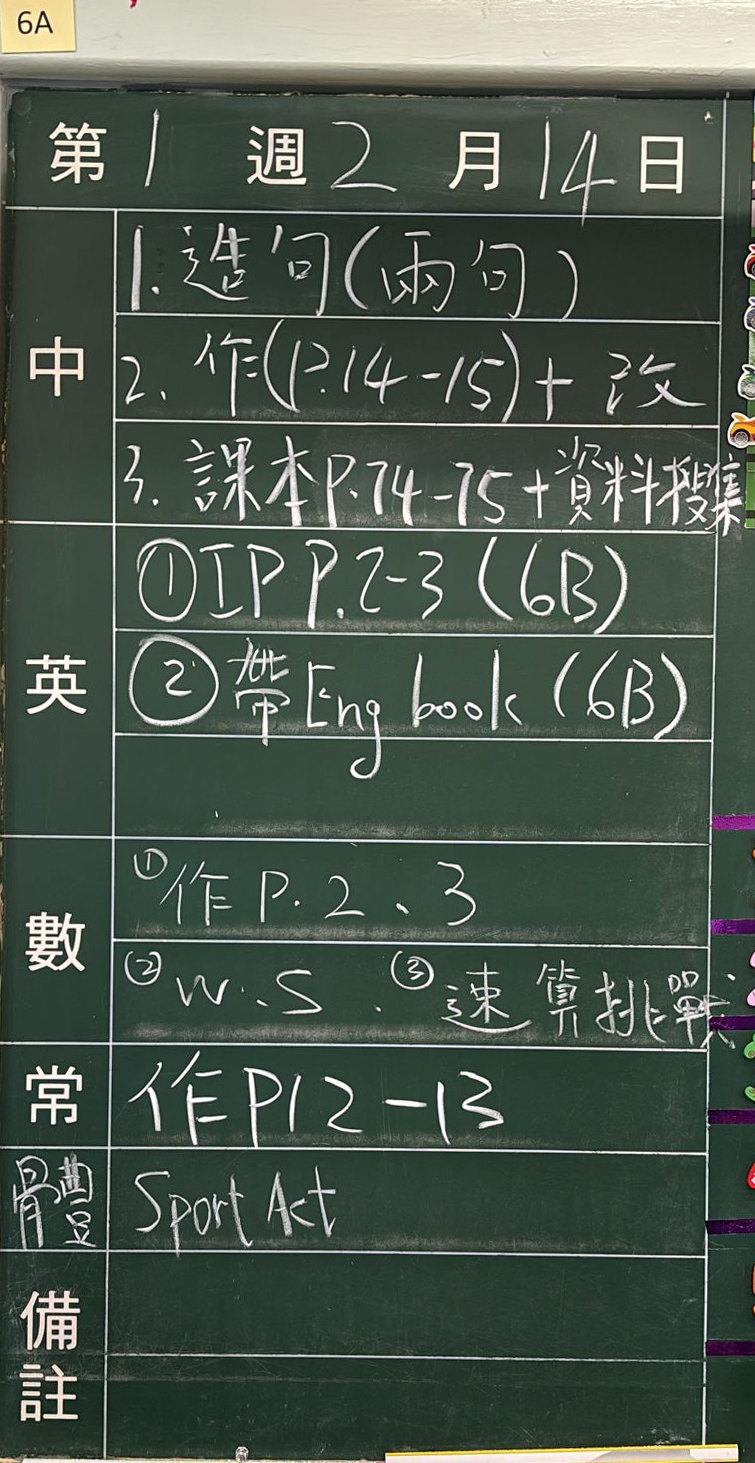 6A
第1週2月14日
中
1. 造句(兩句)
2. 作(P.14-15)+ 改
3. 課本P.74-75+資料搜集
英
①IP P.2-3 (6B)
②帶Eng book (6B)
數
①作 P. 2、3
②W.S. ③速算挑戰
常
作P12-13
體
Sport Act
備註